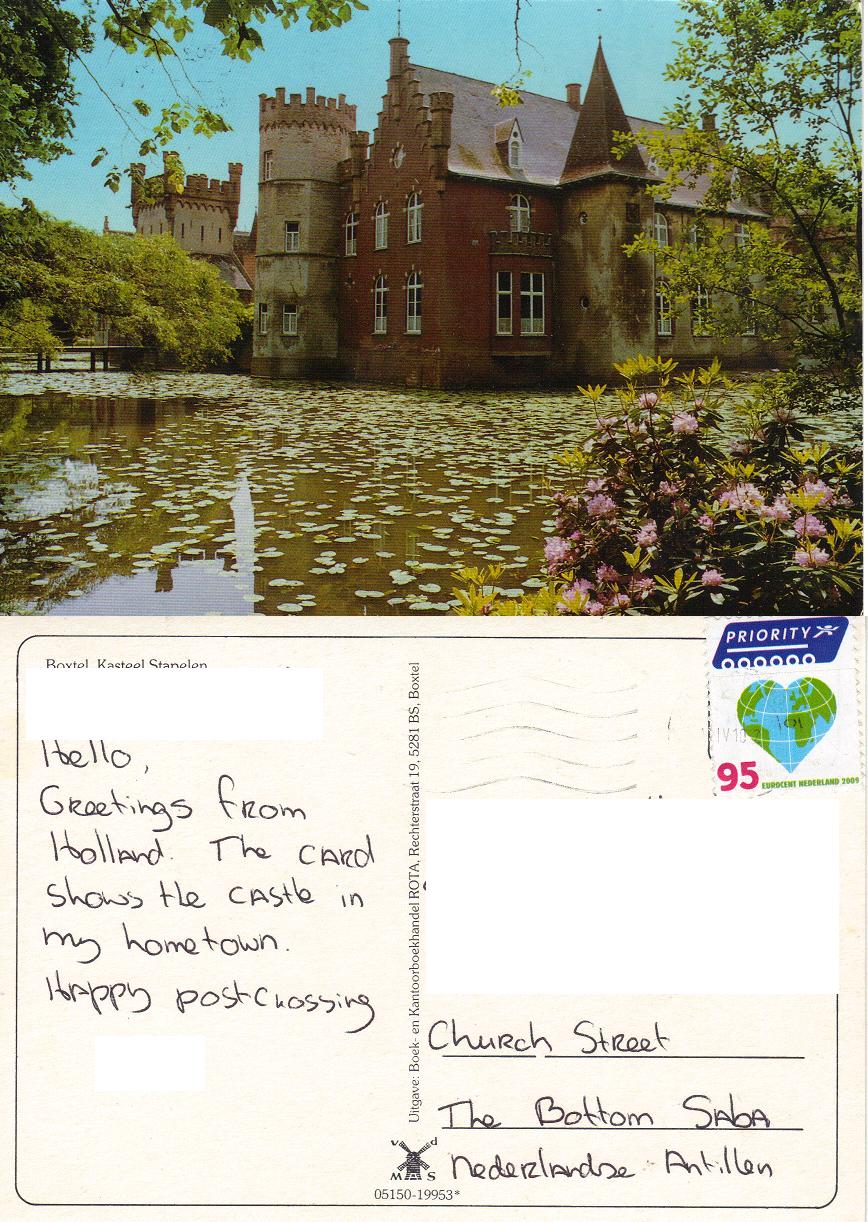 Boxtel, Kasteel Stapelen
Hello,
Greetings from
Holland. The card
shows the castle in
my hometown.
Happy postcrossing
Uitgave: Boek- en Kantoorboekhandel ROTA, Rechterstraat 19, 5281 BS, Boxtel
PRIORITY
95 EUROCENT NEDERLAND 2009
Church Street
The Bottom Saba
Nederlandse Antillen
v d
M S
05150-19953*